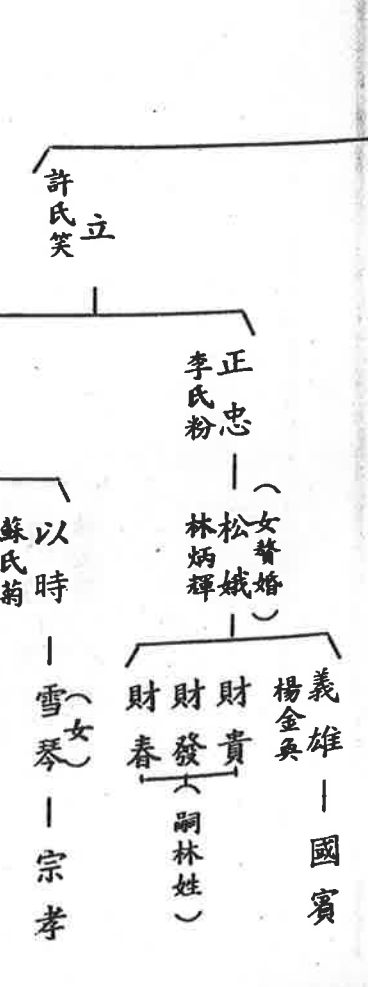 立
許氏笑
正忠
李氏粉
（女贅婚）
松娥
林炳輝
義雄
楊金奐
國賓
財貴
財發
財春
（嗣林姓）
以時
蘇氏菊
（女）
雪琴
宗孝